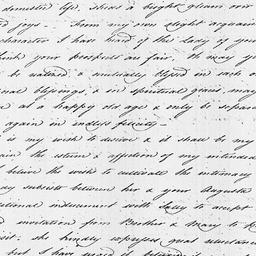 domestic life, sheds a bright gleam over
joys — From my own slight acquain
character I have heard of the lady of you
think your prospects are fair. It may yo
be valued & mutually blessed in each o
onal blessings, & in spiritual graces, may
at a happy old age & only be separa
again in endless felicity —
is my wish to desire & it shall be my
ain the esteem & affection of my intended
I believe the wish to cultivate the intimacy
dy subsists between her & your Augusta
itional inducement with Sally to accept
invitation from Brother & Mary to
visit: she kindly expresses great reluctance
but I have